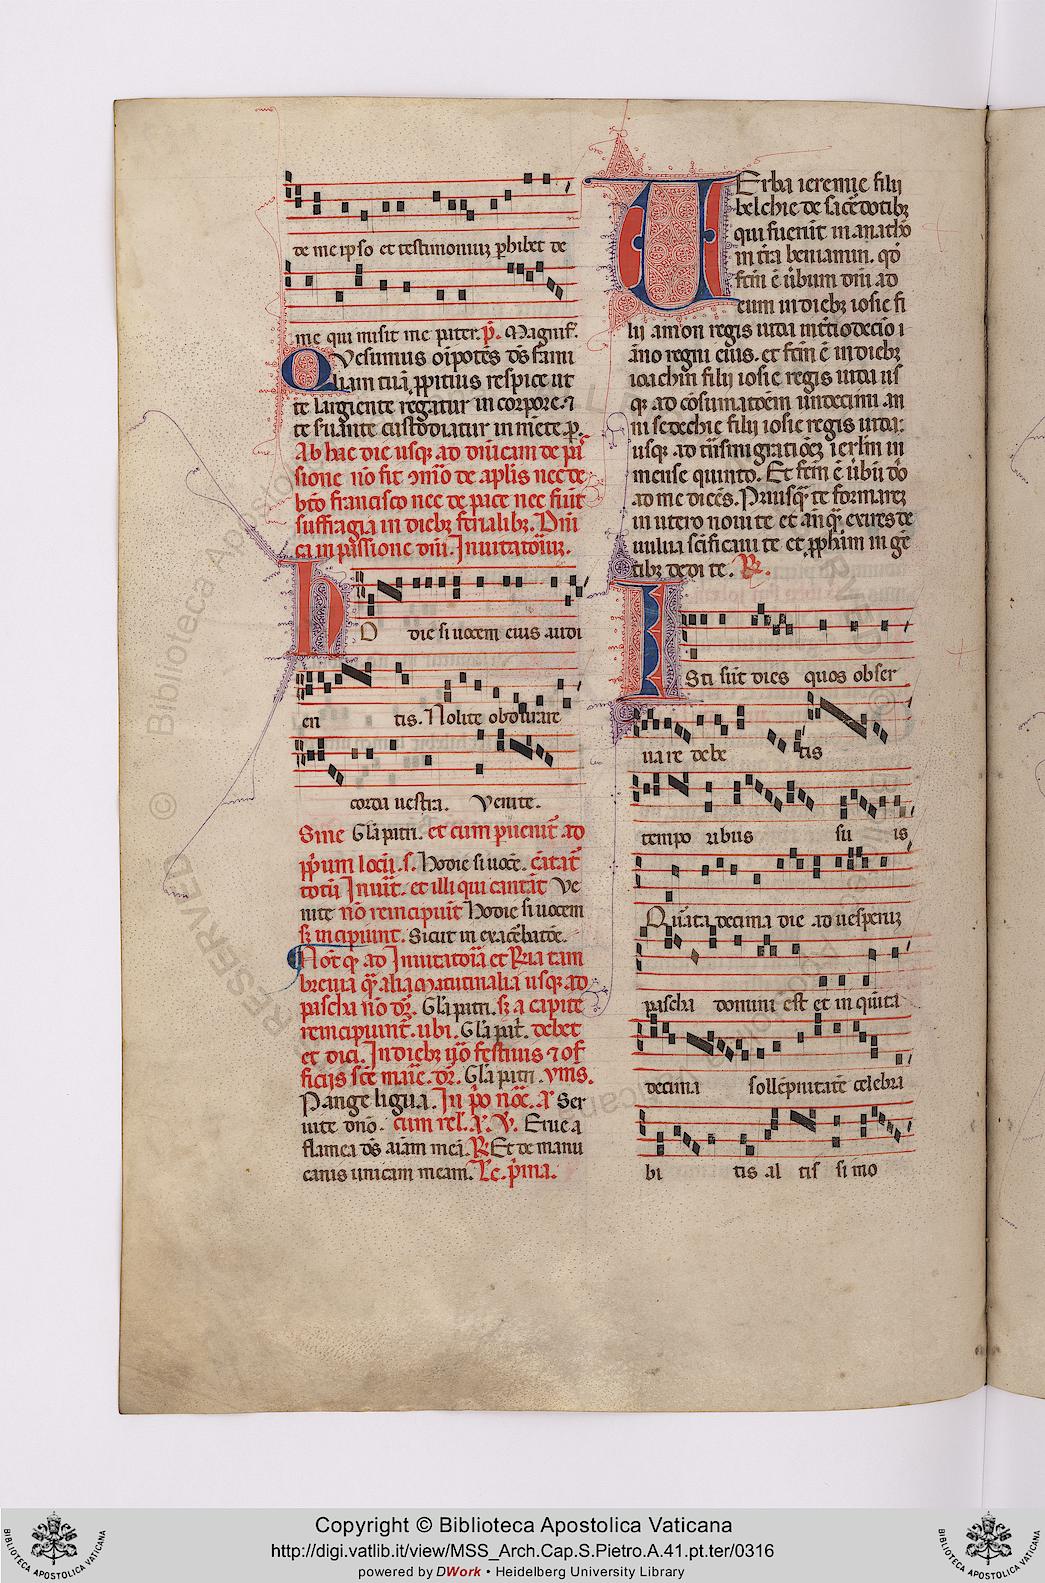 de me ipso et testimoniuz phibet de
me qui misit me pater. p̄. Magnif̄.
Quesumus oīpotēs d̄s fami
liam tuā ppitius respice ut
te largiente regatur in corpore. ⁊
te suante custodiatur in mēte. p̱.
Ab hac die usq; ad dn̄icam de pas
sione nō fit ꝯmō de apl̄is nec de
bt̄o francisco nec de pace nec fiūt
suffragia in dieb; ferialib;. Dn̄i
ca in passione dn̄i. Inuitatoriū.
hO die si uocem eius audi
en tis. Nolite obdurare
corda uestra. Venite.
Sine Gl̄a patri. et cum puenit̄ ad
pp̄um locū. s. Hodie si uocē. cātat̄
totū Inuit̄. et illi qui cantāt Ve
nite nō reincipiūt Hodie si uocem
s; incipiunt. Sicut in exacerbatōe.
Not̄ q̄ ad Inuitatoria et R̄ria tam
breuia q̄ alia matutinalia usq; ad
pascha nō dr̄. Gl̄a patri. s; a capite
reincipiunt̄. ubi. Gl̄a pat̄. debet
et dici. In dieb; ūo festiuis ⁊ of
ficijs sc̄e marie. dr̄. Gl̄a patri. ymn̄s.
Pange ligua. In p̄o noc̄. a̅ Ser
uite dn̄o. cum rel̄. a̅. V̄. Erue a
framea d̄s aīam meā. R̄ Et de manu
canis unicam meam. Lc̄. p̄ma.
VErba ieremie filij
helchie de sacēdotib;
qui fuerūt in anatho
in tr̄a beniamin. qd̄
fcm̄ ē ūbum dn̄i ad
eum in dieb; iosie fi
lij amon regis iuda in t̄tiodecio
āno regni eius. et fcm̄ ē in dieb;
ioachim filij iosie regis iuda us
q; ad cōsumatōem undecimi an
ni sedechie filij iosie regis iuda:
usq; ad trāsmigratiōez ierl̄m in
mense quinto. Et fcm̄ ē ūbū dn̄i
ad me dicēs. Priusq̄ te formarez
in utero noui te et an̄q̄ exires de
uulua sc̄ificaui te et pphām in gē
tib; dedi te. R̄.
ISti sūt dies quos obser
uare debe tis
tempo ribus su is
Quarta decima die ad uesperuz
pascha domini est et in quīta
decima sollēpnitatē celebra
bi tis al tis simo
Copyright © Biblioteca Apostolica Vaticana
http://digi.vatlib.it/view/MSS_Arch.Cap.S.Pietro.A.41.pt.ter/0316
powered by DWork • Heidelberg University Library